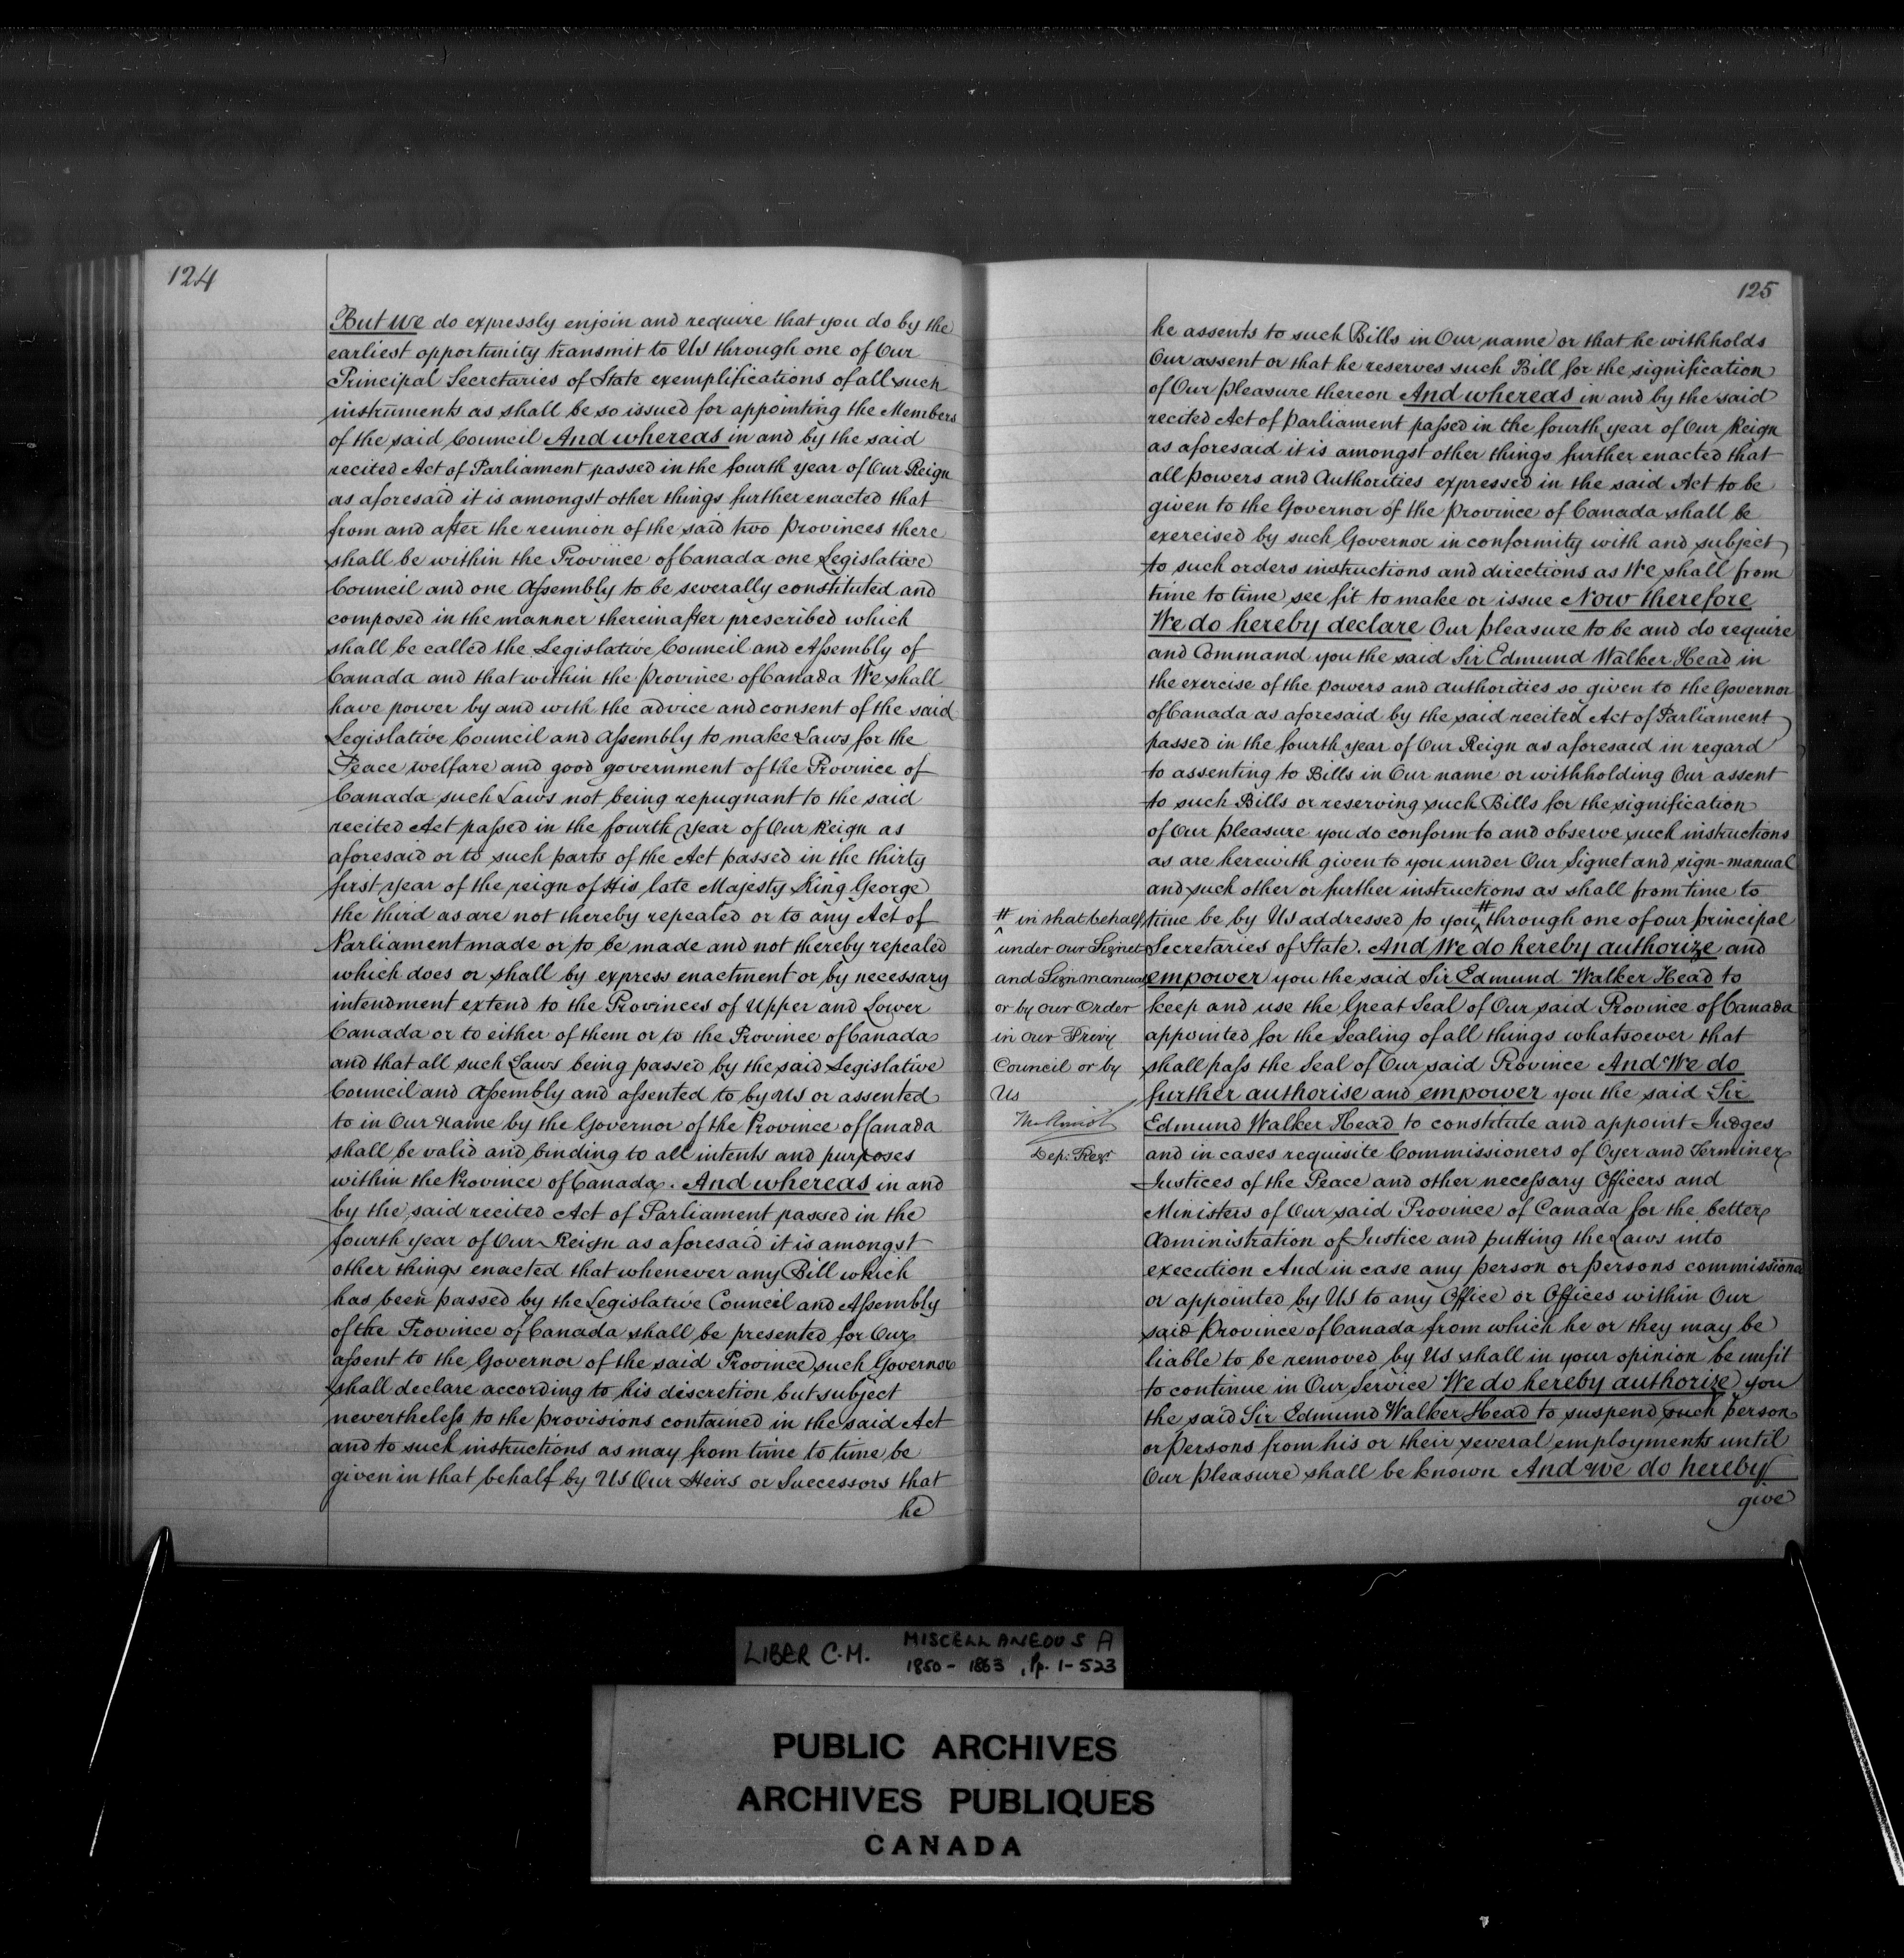 124
But We do expressly enjoin and require that you do by the
earliest opportunity transmit to Us through one of Our
Principal Secretaries of State exemplifications of all such
instruments as shall be so issued for appointing the Members
of the said Council And whereas in and by the said
recited Act of Parliament passed in the fourth year of Our Reign
as aforesaid it is amongst other things further enacted that
from and after the reunion of the said two Provinces there
shall be within the Province of Canada one Legislative
Council and one Assembly to be severally constituted and
composed in the manner thereinafter prescribed which
shall be called the Legislative Council and Assembly of
Canada and that within the Province of Canada We shall
have power by and with the advice and consent of the said
Legislative Council and Assembly to make Laws for the
Peace welfare and good government of the Province of
Canada such Laws not being repugnant to the said
recited Act passed in the fourth year of Our Reign as
aforesaid or to such parts of the Act passed in the thirty
first year of the reign of His late Majesty King George
the third as are not thereby repealed or to any Act of
Parliament made or to be made and not thereby repealed
which does or shall by express enactment or by necessary
intendment extend to the Provinces of Upper and Lower
Canada or to either of them or to the Province of Canada
and that all such Laws being passed by the said Legislative
Council and Assembly and assented to by Us or assented
to in Our name by the Governor of the Province of Canada
shall be valid and binding to all intents and purposes
within the Province of Canada. And whereas in and
by the said recited Act of Parliament passed in the
fourth year of Our Reign as aforesaid it is amongst
other things enacted that whenever any Bill which
has been passed by the Legislative Council and Assembly
of the Province of Canada shall be presented for Our
assent to the Governor of the said Province such Governor
shall declare according to his discretion but subject
nevertheless to the provisions contained in the said Act
and to such instructions as may from time to time be
given in that behalf by Us Our Heirs or Successors that
he
125
he assents to such Bills in Our name or that he withholds
Our assent or that he reserves such Bill for the signification
of Our pleasure thereon And whereas in and by the said
recited Act of Parliament passed in the fourth year of Our Reign
as aforesaid it is amongst other things further enacted that
all powers and Authorities expressed in the said Act to be
given to the Governor of the Province of Canada shall be
exercised by such Governor in conformity with and subject
to such orders instructions and directions as We shall from
time to time see fit to make or issue Now therefore
We do hereby declare Our pleasure to be and do require
and Command you the said Sir Edmund Walker Head in
the exercise of the powers and authorities so given to the Governor
of Canada as aforesaid by the said recited Act of Parliament
passed in the fourth year of Our Reign as aforesaid in regard
to assenting to Bills in Our name or withholding Our assent
to such Bills or reserving such Bills for the signification
of Our pleasure you do conform to and observe such instructions
as are herewith given to you under Our Signet and sign-manual
and such other or further instructions as shall from time to
time be by Us addressed to you # through one of our principal
Secretaries of State. And We do hereby authorize and
empower you the said Sir Edmund Walker Head to
keep and use the Great Seal of Our said Province of Canada
appointed for the Sealing of all things whatsoever that
shall pass the Seal of Our said Province And We do
further authorise and empower you the said Sir
Edmund Walker Head to constitute and appoint Judges
and in cases requisite Commissioners of Oyer and Terminer
Justices of the Peace and other necessary Officers and
Ministers of Our said Province of Canada for the better
Administration of Justice and putting the Laws into
execution And in case any person or persons commissioned
or appointed by Us to any Office or Offices within Our
said Province of Canada from which he or they may be
liable to be removed by Us shall in your opinion be unfit
to continue in Our Service We do hereby authorize you
the said Sir Edmund Walker Head to suspend such person
or persons from his or their several employments until
Our pleasure shall be known And we do hereby
give
# in that behalf
under our Signet
and Sign manual
or by our Order
in our Privy
Council or by
Us
Dep: Regr.
LIBER C.M. MISCELLANEOUS A
1850-1863, Pp. 1-523
PUBLIC ARCHIVES
ARCHIVES PUBLIQUES
CANADA